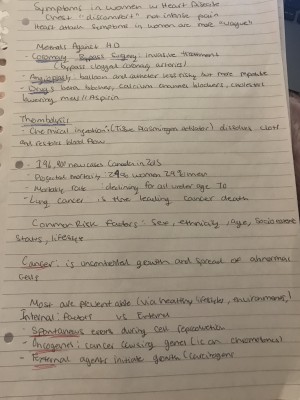 Symptoms in women w/ Heart Disease
Chest "discomfort" not intense pain
Heart attack symptoms in women are more "vague"
Methods Against HD
- Coronary Bypass Surgery: invasive treatment
(bypass clogged coronary arteries)
- Angioplasty: balloon and catheter less risky but more
- Drugs beta blockers, calcium channel blockers, cholesterol
lowering meds/Aspirin
Thrombolysis
- Chemical injection (Tissue Plasminogen activator) dissolves clots
and restore blood flow
- new cases Canada in 2015
- Mortality rate declining for all under age 70
- Lung cancer is the leading cancer death
Common Risk Factors: Sex, ethnicity, age, Socioeconomic
Status, lifestyle
Cancer: is uncontrolled growth and spread of abnormal
cells
Most are preventable (via healthy lifestyle, environments)
Internal Factors vs External
- Spontaneous errors during cell reproduction
- Oncogenes: cancer causing genes (
- External agents initiate growth (carcinogens